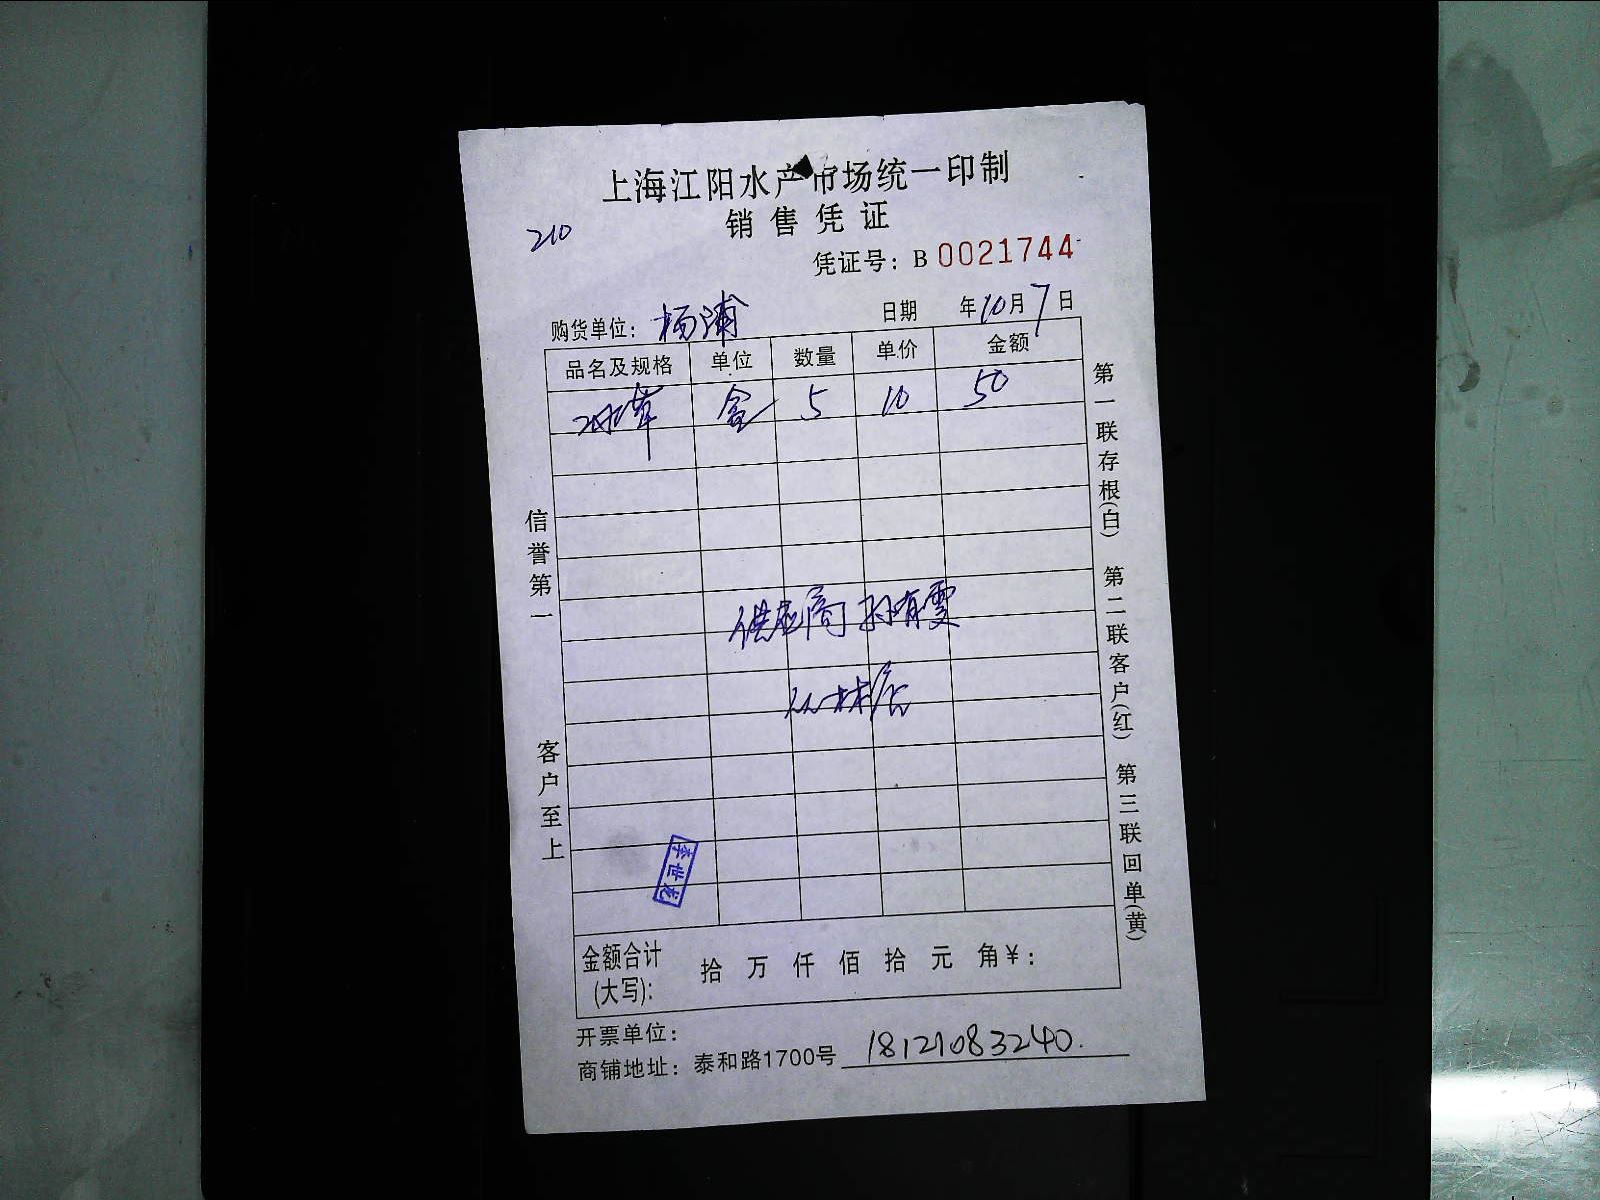 上海江阳水产市场统一印制
销售凭证
210
凭证号：B 0021744
购货单位：杨浦 日期 年10月7日
品名及规格 单位 数量 单价 金额
盒 5 10 50
供应商 孙有雯
林店
信誉第一 客户至上
第一联存根(白) 第二联客户(红) 第三联回单(黄)
李世龙
金额合计(大写)： 拾 万 仟 佰 拾 元 角 ¥：
开票单位：
商铺地址：泰和路1700号 18121083240.